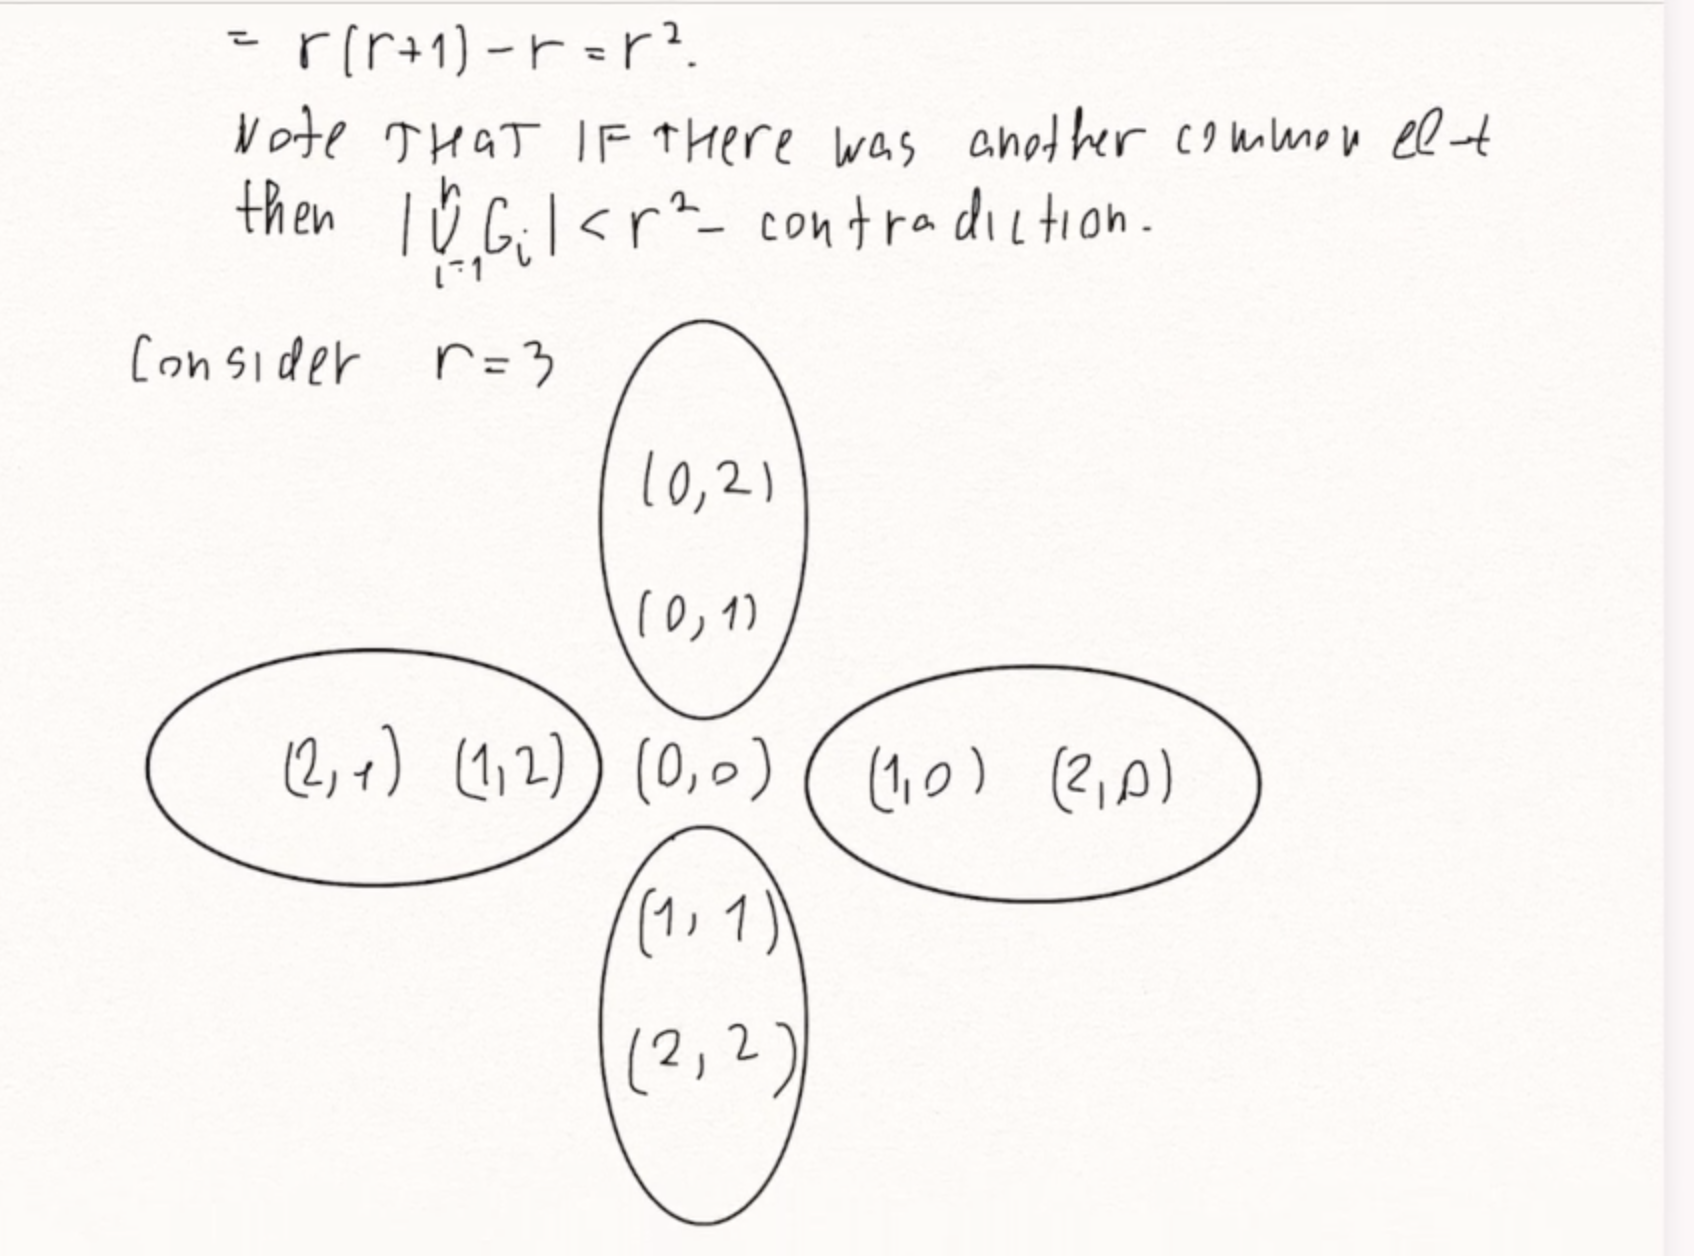 = r(r+1) - r = r².
Note THAT IF tHere was another common el-t
then |⋃ⁿᵢ₌₁ Gᵢ| < r² - contradiction.
Consider r = 3
(0,2)
(0,1)
(2,1) (1,2) (0,0) (1,0) (2,0)
(1,1)
(2,2)